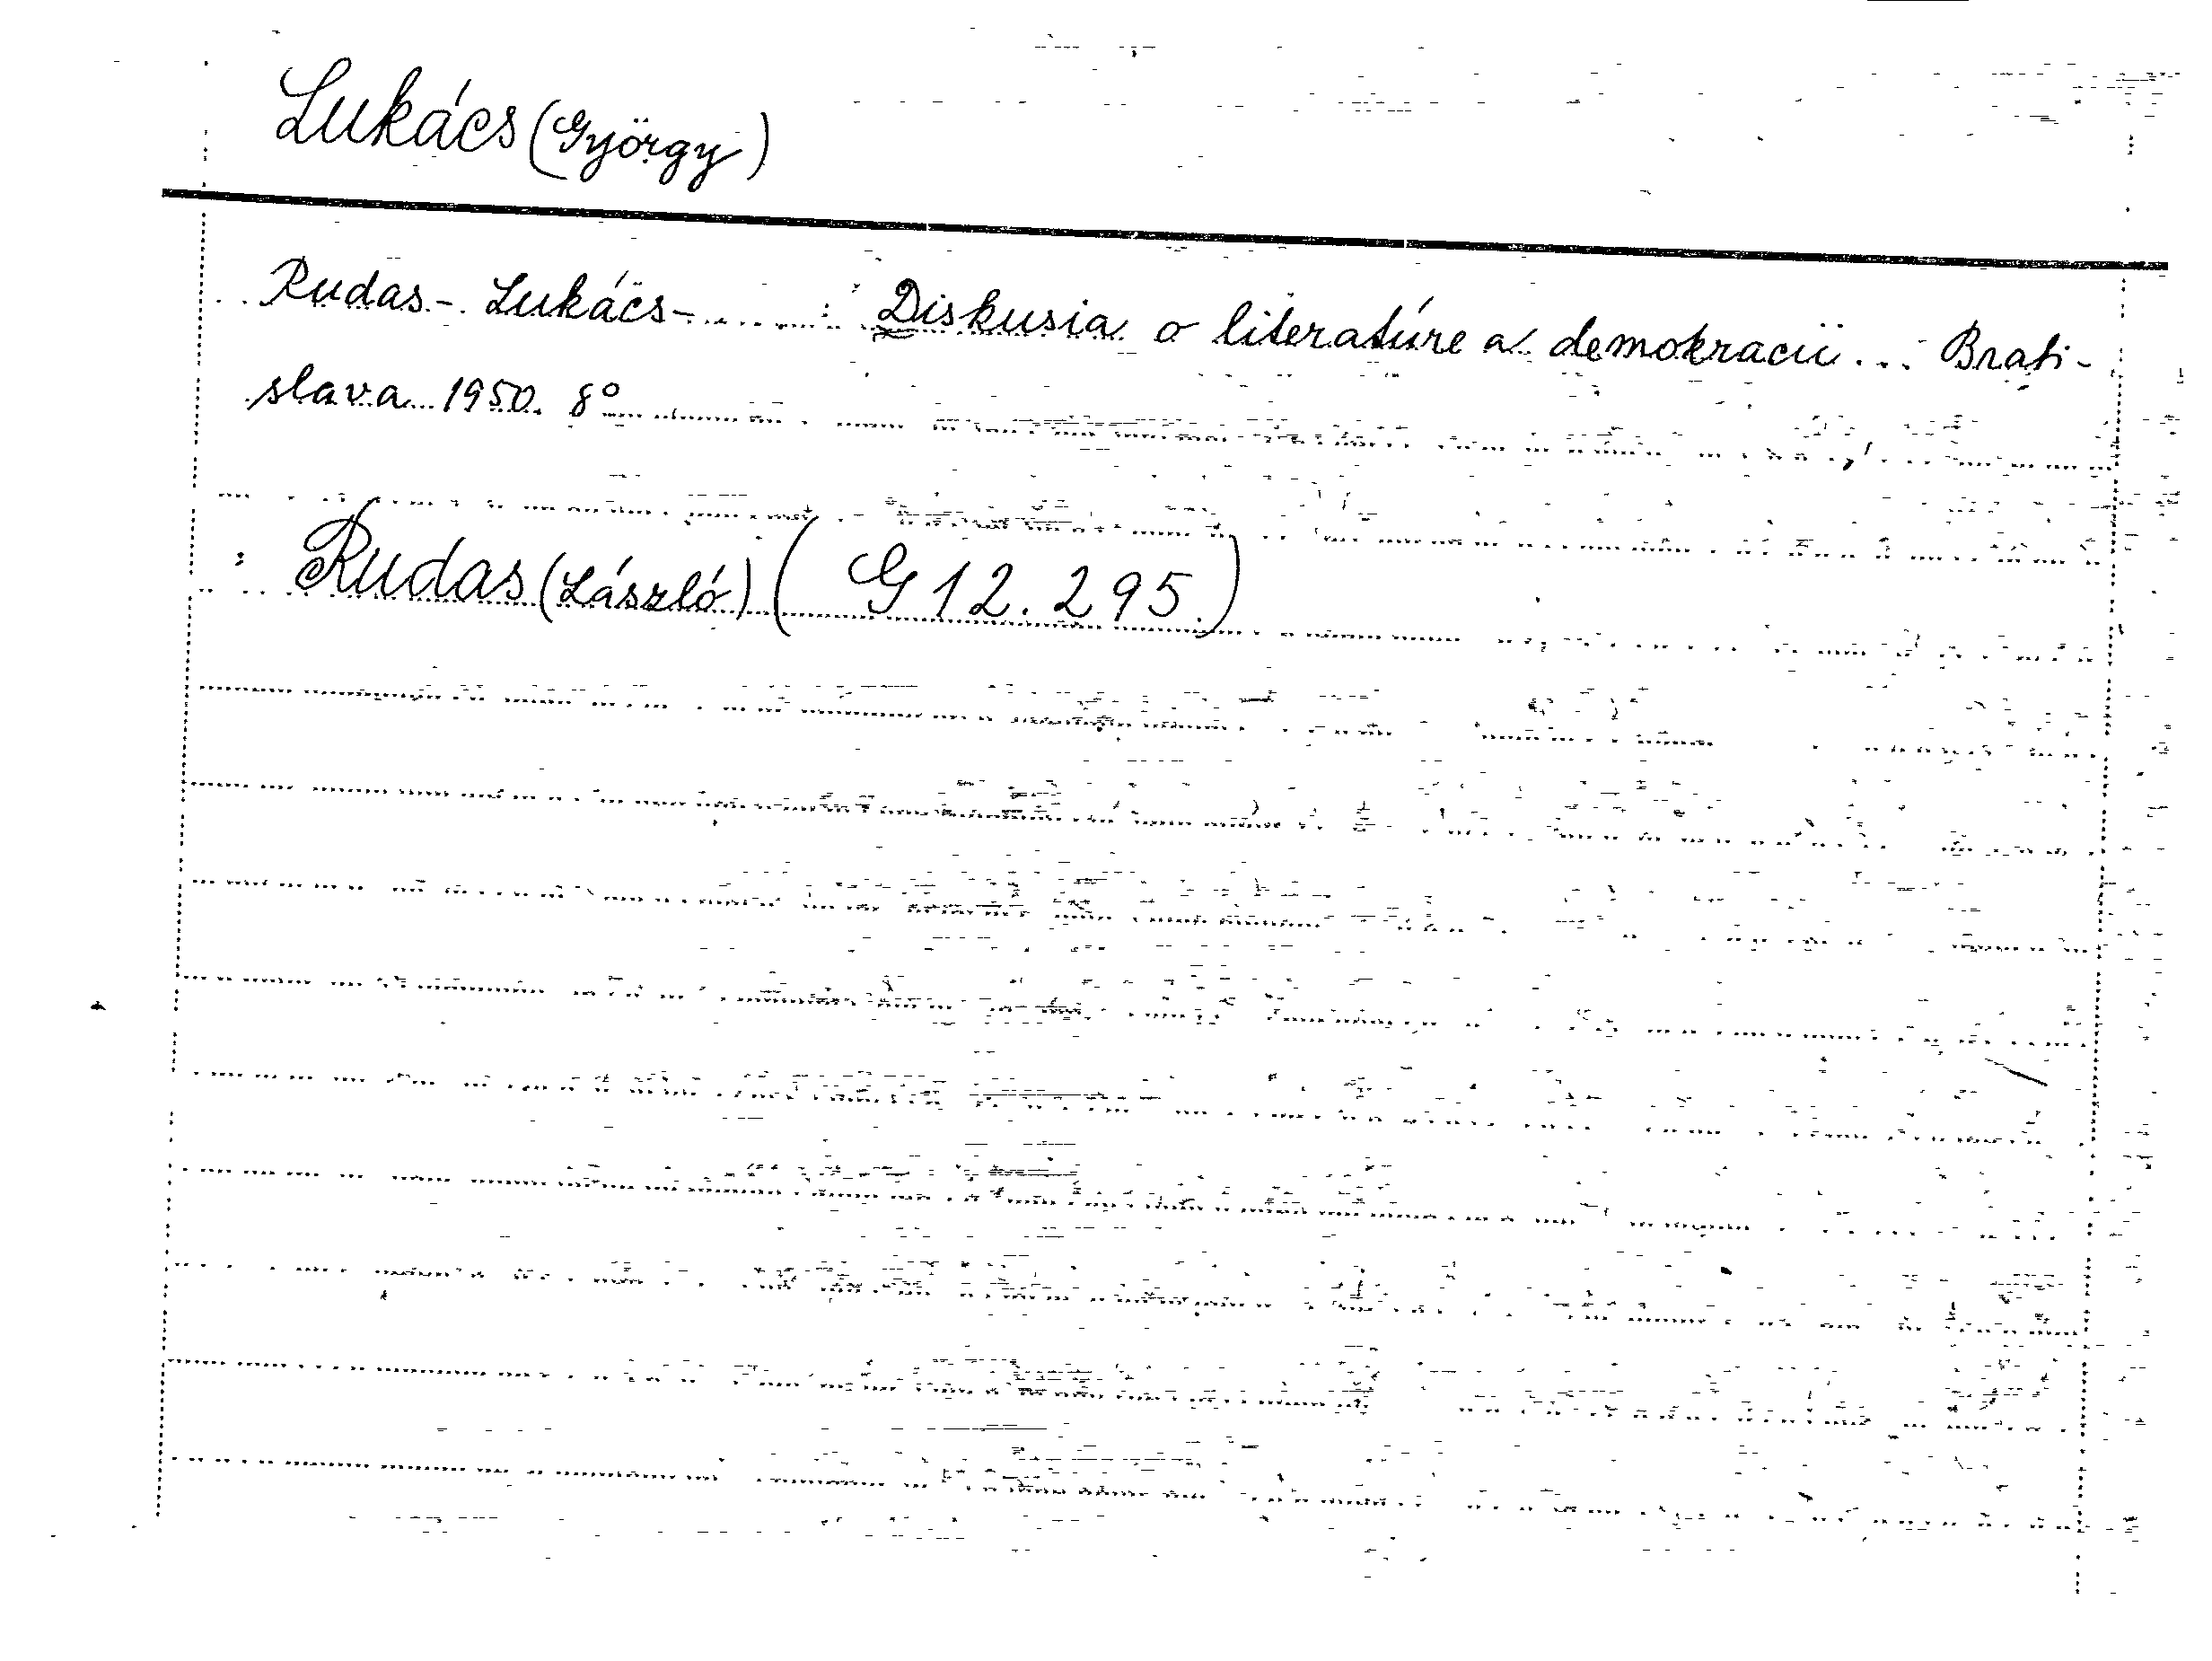 Lukács (György)
Rudas - Lukács - ..... : Diskusia o literatúre a demokracii ... Brati-
slava 1950. 8°
: Rudas (László) ( G 12.295.)